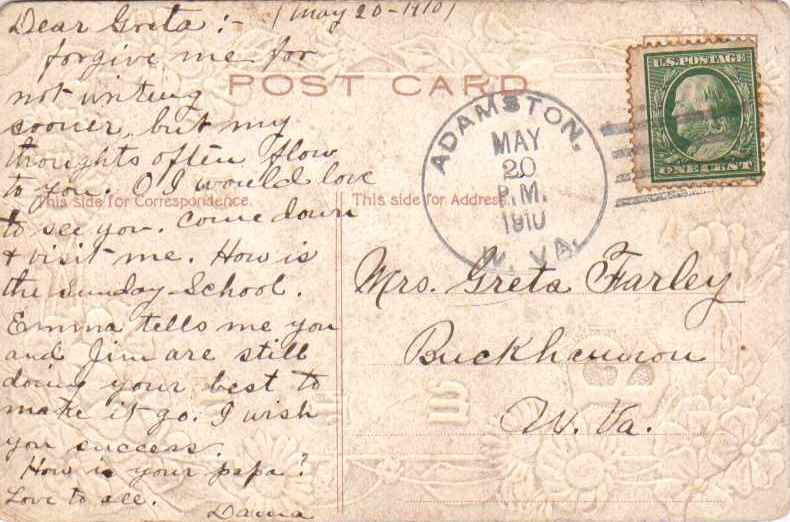 Dear Greta :- (May 20-1910)
forgive me for
not writing
sooner, but my
thoughts often flow
to you. O I would love
to see you. Come down
& visit me. How is
the Sunday-School.
Emma tells me you
and Jim are still
doing your best to
make it go. I wish
you success.
How is your papa?
Love to all.
POST CARD
This side for Correspondence.
This side for Address
ADAMSTON.
MAY
20
P.M.
1910
W. VA.
U.S. POSTAGE
ONE CENT
Mrs. Greta Farley
Buckhannon
W. Va.